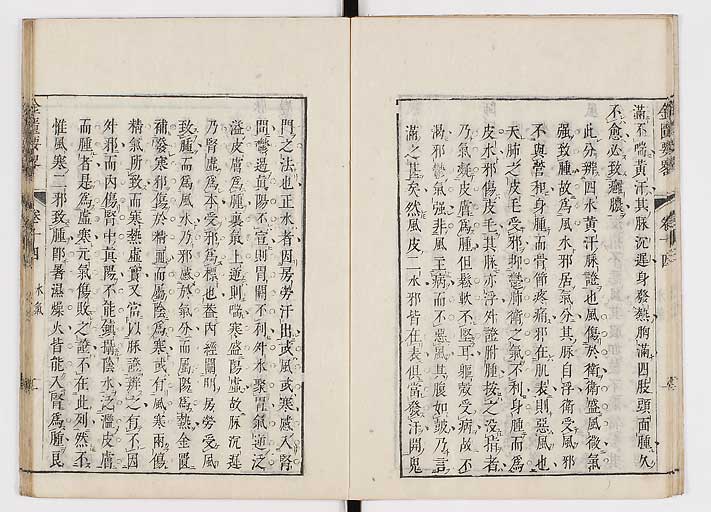 滿不喘黃汗其脉沉遲身發熱胸滿四肢頭面腫久
不愈必致癰膿
此分辨四水黃汗脉證也風傷於衛衛盛風微氣
强致腫故為風水邪居氣分其脉自浮衛受風邪
不與營和身腫而骨節疼痛邪在肌表則惡風也
夫肺之皮毛受邪抑鬱肺衛之氣不利身腫而為
皮水邪傷皮毛其脉亦浮外證胕腫按之没指者
乃氣凝皮膚為腫但鬆軟不堅耳軀殼受病故不
渴邪鬱氣强非風主病而不惡風其腹如鼓乃言
滿之甚矣然風皮二水邪皆在表俱當發汗開鬼
門之法也正水者因房勞汗出或風或寒感入腎
間鬱遏真陽不宣則胃關不利外水聚胃氣逆泛
溢皮膚為腫裏氣上逆則喘寒盛陽虛故脉沉遲
乃腎虛為本受邪為標也葢内經闡明房勞受風
致腫而為風水乃邪感於氣分而屬陽為熱金匱
補發寒邪傷於精血而屬陰為寒或有風寒兩傷
精氣所致而寒熱虛實又當以脉證辨之有不因
外邪而内傷腎中真陽不能鎮攝陰水之溢皮膚
而腫者是為虛寒元氣傷敗之證不在此列然不
惟風寒二邪致腫即暑濕燥火皆能入腎為腫良
金匱要畧
卷十四
水氣